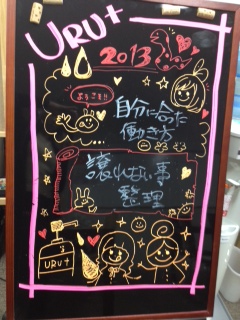 URU+
2013
ようこそ!!
自分に合った
働き方
譲れない事
整理
URU+